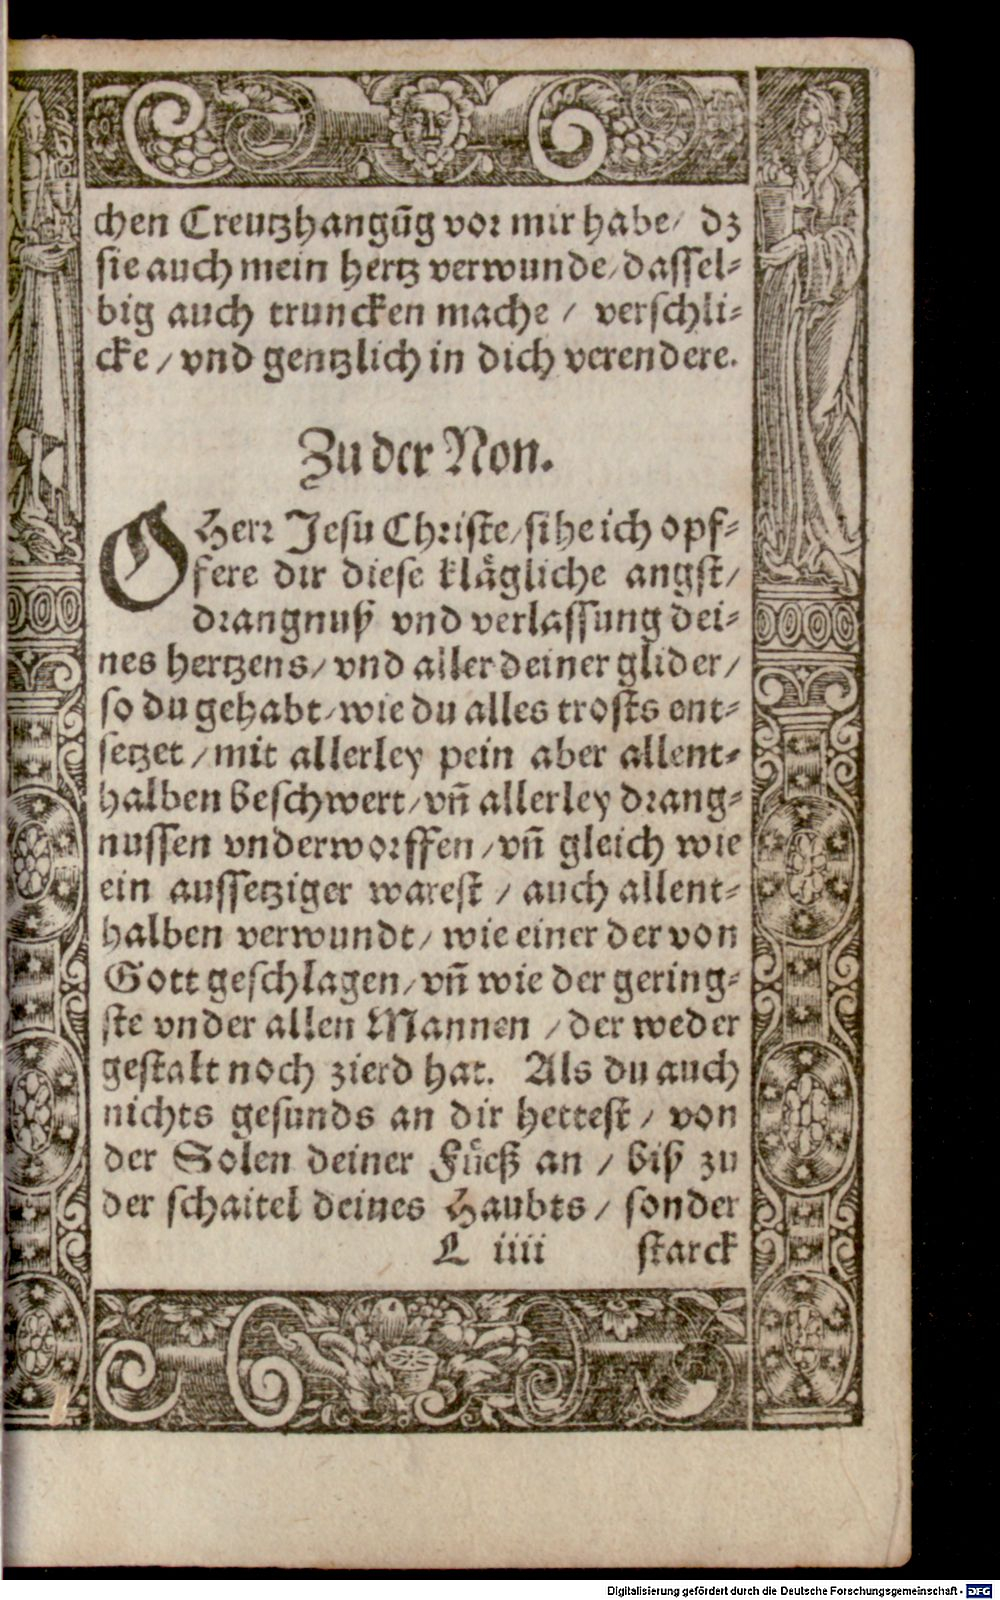 chen Creutzhangūg vor mir habe / dz
sie auch mein hertz verwunde / dassel-
big auch truncken mache / verschli-
cke / vnd gentzlich in dich verendere.
Zu der Non.
O Herr Jesu Christe / sihe ich opf-
fere dir diese klägliche angst /
drangnuß vnd verlassung dei-
nes hertzens / vnd aller deiner glider /
so du gehabt / wie du alles trosts ent-
setzet / mit allerley pein aber allent-
halben beschwert / vñ allerley drang-
nussen vnderworffen / vñ gleich wie
ein aussetziger warest / auch allent-
halben verwundt / wie einer der von
Gott geschlagen / vñ wie der gering-
ste vnder allen Mannen / der weder
gestalt noch zierd hat. Als du auch
nichts gesunds an dir hettest / von
der Solen deiner Fůeß an / biß zu
der schaitel deines Haubts / sonder
L iiii starck
Digitalisierung gefördert durch die Deutsche Forschungsgemeinschaft - DFG